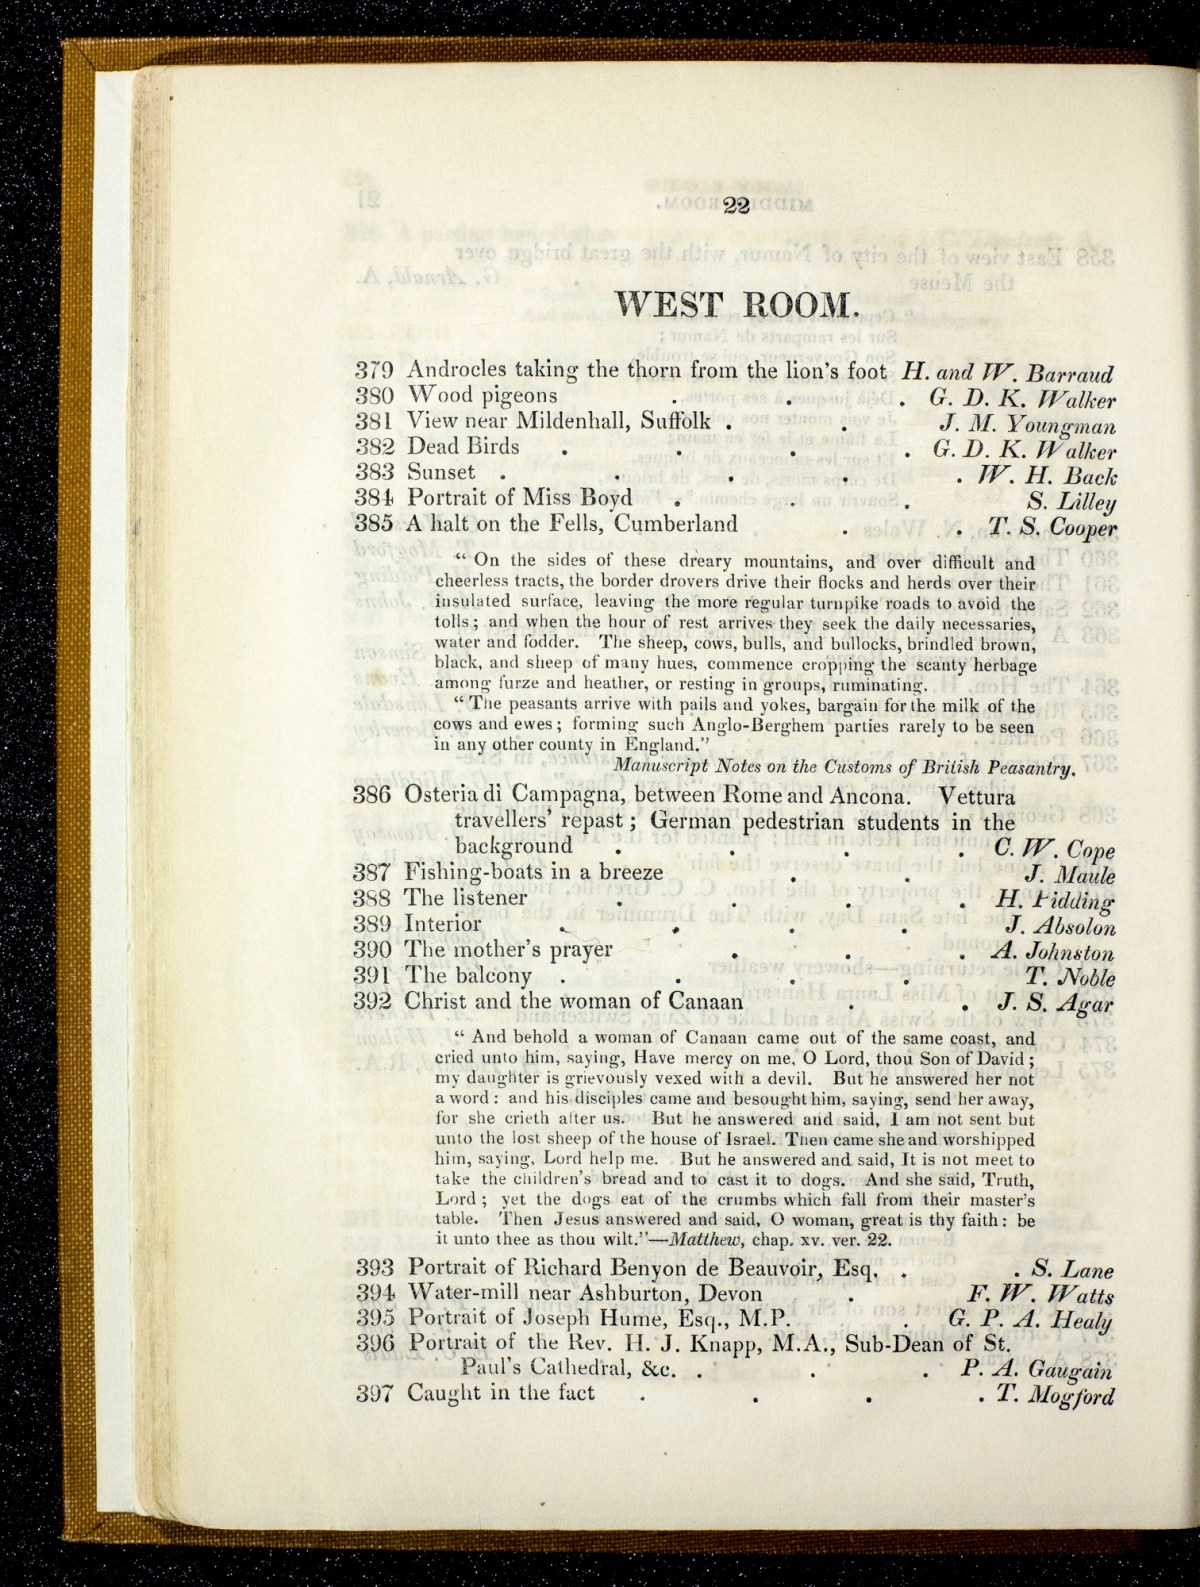 22
WEST ROOM.
379 Androcles taking the thorn from the lion's foot H. and W. Barraud
380 Wood pigeons . . . G. D. K. Walker
381 View near Mildenhall, Suffolk . . J. M. Youngman
382 Dead Birds . . . . G. D. K. Walker
383 Sunset . . . . . W. H. Back
384 Portrait of Miss Boyd . . . S. Lilley
385 A halt on the Fells, Cumberland . . T. S. Cooper
" On the sides of these dreary mountains, and over difficult and
cheerless tracts, the border drovers drive their flocks and herds over their
insulated surface, leaving the more regular turnpike roads to avoid the
tolls ; and when the hour of rest arrives they seek the daily necessaries,
water and fodder. The sheep, cows, bulls, and bullocks, brindled brown,
black, and sheep of many hues, commence cropping the scanty herbage
among furze and heather, or resting in groups, ruminating.
" The peasants arrive with pails and yokes, bargain for the milk of the
cows and ewes ; forming such Anglo-Berghem parties rarely to be seen
in any other county in England."
Manuscript Notes on the Customs of British Peasantry.
386 Osteria di Campagna, between Rome and Ancona. Vettura
travellers' repast ; German pedestrian students in the
background . . . . C. W. Cope
387 Fishing-boats in a breeze . . J. Maule
388 The listener . . . . H. Pidding
389 Interior . . . . J. Absolon
390 The mother's prayer . . . A. Johnston
391 The balcony . . . . T. Noble
392 Christ and the woman of Canaan . . J. S. Agar
" And behold a woman of Canaan came out of the same coast, and
cried unto him, saying, Have mercy on me, O Lord, thou Son of David ;
my daughter is grievously vexed with a devil. But he answered her not
a word : and his disciples came and besought him, saying, send her away,
for she crieth after us. But he answered and said, I am not sent but
unto the lost sheep of the house of Israel. Then came she and worshipped
him, saying, Lord help me. But he answered and said, It is not meet to
take the children's bread and to cast it to dogs. And she said, Truth,
Lord ; yet the dogs eat of the crumbs which fall from their master's
table. Then Jesus answered and said, O woman, great is thy faith : be
it unto thee as thou wilt."—Matthew, chap. xv. ver. 22.
393 Portrait of Richard Benyon de Beauvoir, Esq. . . S. Lane
394 Water-mill near Ashburton, Devon . F. W. Watts
395 Portrait of Joseph Hume, Esq., M.P. . G. P. A. Healy
396 Portrait of the Rev. H. J. Knapp, M.A., Sub-Dean of St.
Paul's Cathedral, &c. . . . P. A. Gaugain
397 Caught in the fact . . . . T. Mogford